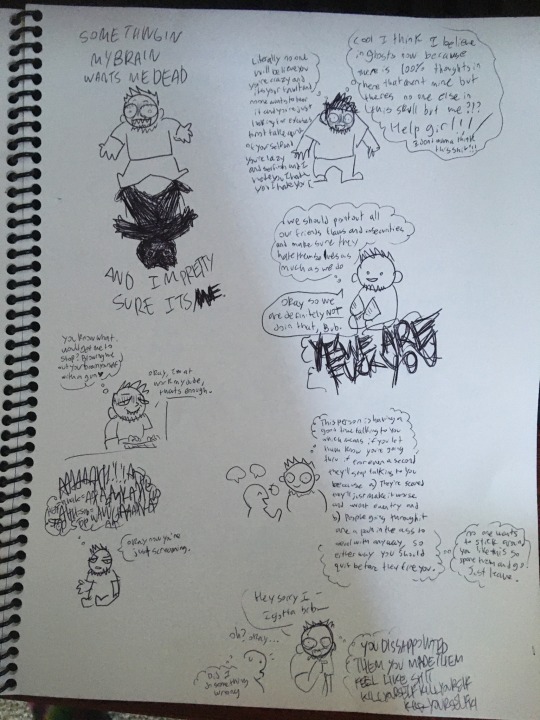 SOMETHING IN
MY BRAIN
WANTS ME DEAD
AND I'M PRETTY
SURE ITS ME.
Literally no one
will believe you
you're crazy and
it's your fault and
no one wants to hear
it and you're just
looking for excuses
to not take care
of yourself and
you're lazy
and selfish and I
hate you I hate
you I hate you
Cool I think I believe
in ghosts now because
there is 100% thoughts in
here that arent mine but
theres no one else in
this skull but me?!?
Help girl!!!
I dont wanna think
this shit!!
we should point out all
our friends flaws and insecurities
and make sure they
hate themselves as
much as we do
Okay so we
are definitely NOT
doin that, Bub.
YES WE ARE
FUCK YOU
you know what
would get me to
stop? Blowing me
out your brains
with a gun
okay, I'm at
work my dude,
that's enough.
AAAAAAH!!!!
okay now you're
just screaming.
This person is having a
good time talking to you
which means if you let
them know you're going
thru it for even a second
they'll stop talking to you
because a) They're scared
they'll just make it worse
and
b) People going through it
are a pain in the ass to
deal with anyway, so
either way you should
quit before they fire you.
no one wants
to stick around
you like this so
spare them and go.
Just leave.
Hey sorry I -
I gotta brb -
oh? okay...
Did I
do something
wrong
YOU DISSAPOINTED
THEM YOU MADE THEM
FEEL LIKE SHIT
KILL YOURSELF KILL YOURSELF
KILL YOURSELF